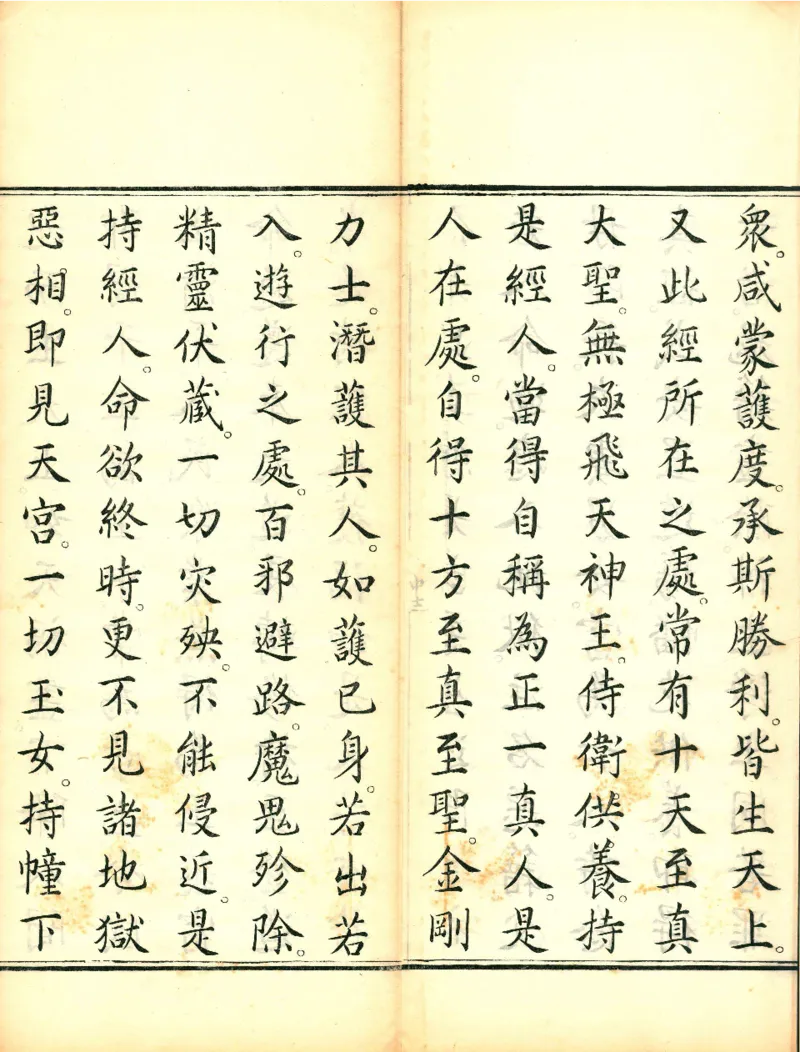 衆。咸蒙護度。承斯勝利。皆生天上。
又此經所在之處。常有十天至真
大聖。無極飛天神王。侍衛供養。持
是經人。當得自稱為正一真人。是
人在處。自得十方至真至聖。金剛
力士。潛護其人。如護已身。若出若
入。遊行之處。百邪避路。魔鬼殄除。
精靈伏藏。一切灾殃。不能侵近。是
持經人。命欲終時。更不見諸地獄
惡相。即見天宮。一切玉女。持幢下